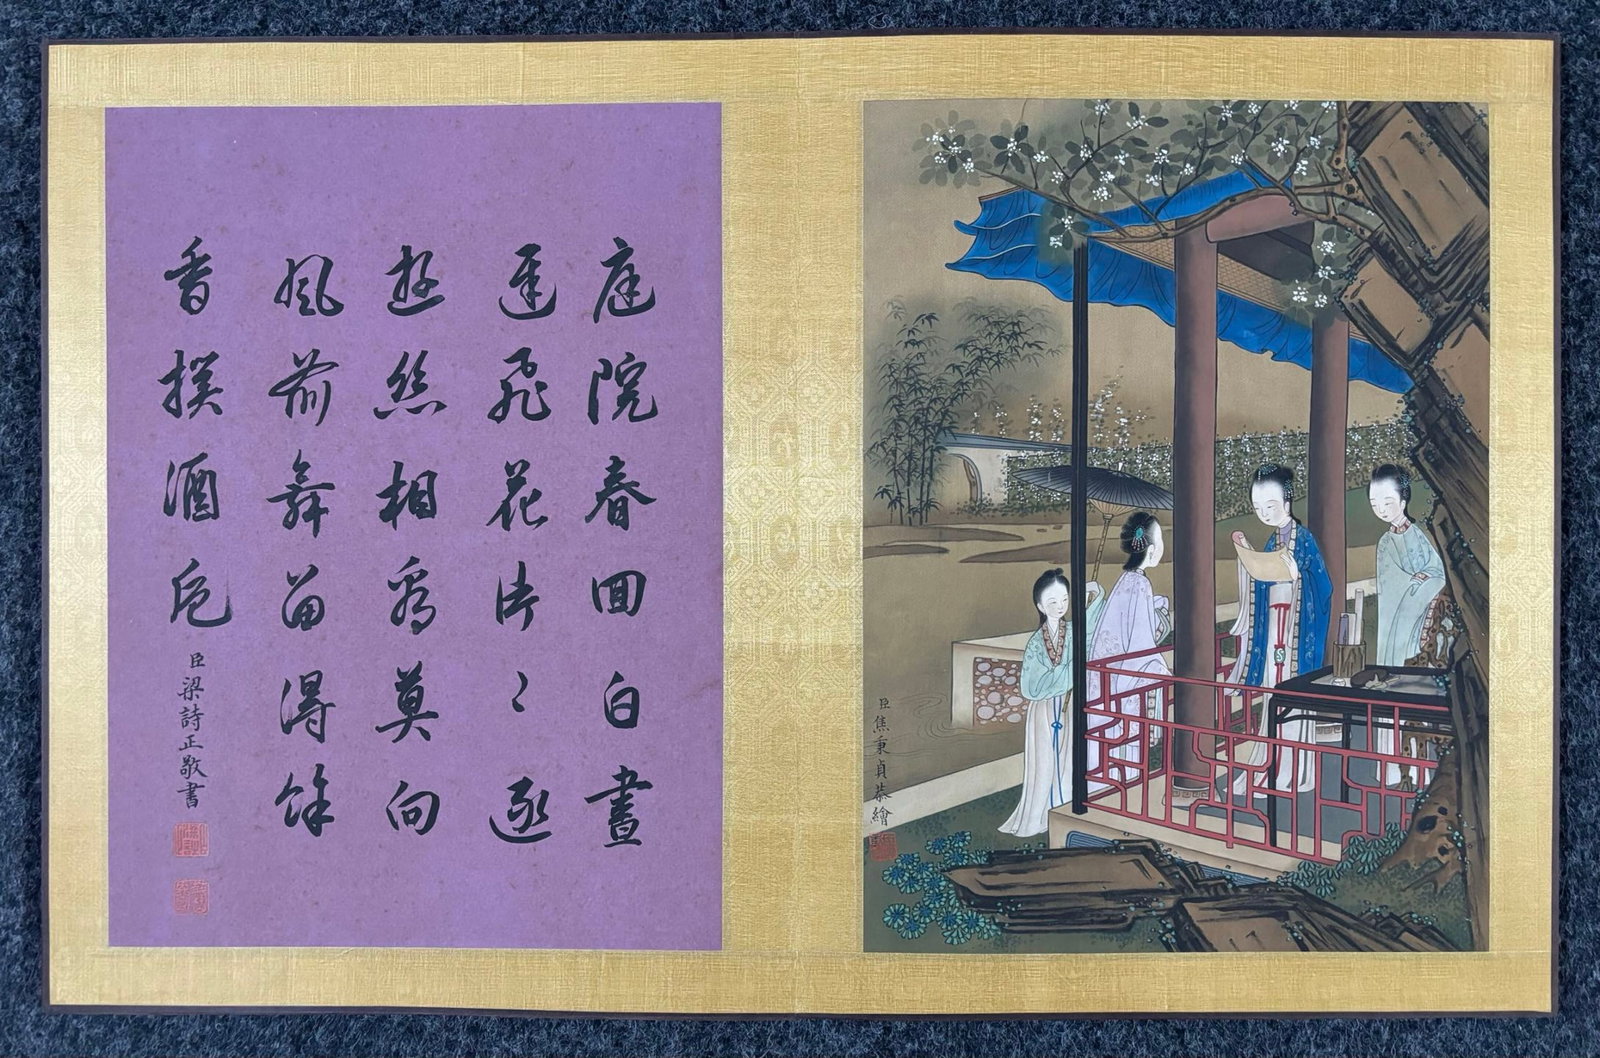 庭院春回白晝
遲飛花片〻逐
遊絲相為莫向
風前舞留得餘
香撲酒卮
臣梁詩正敬書
臣焦秉貞恭繪